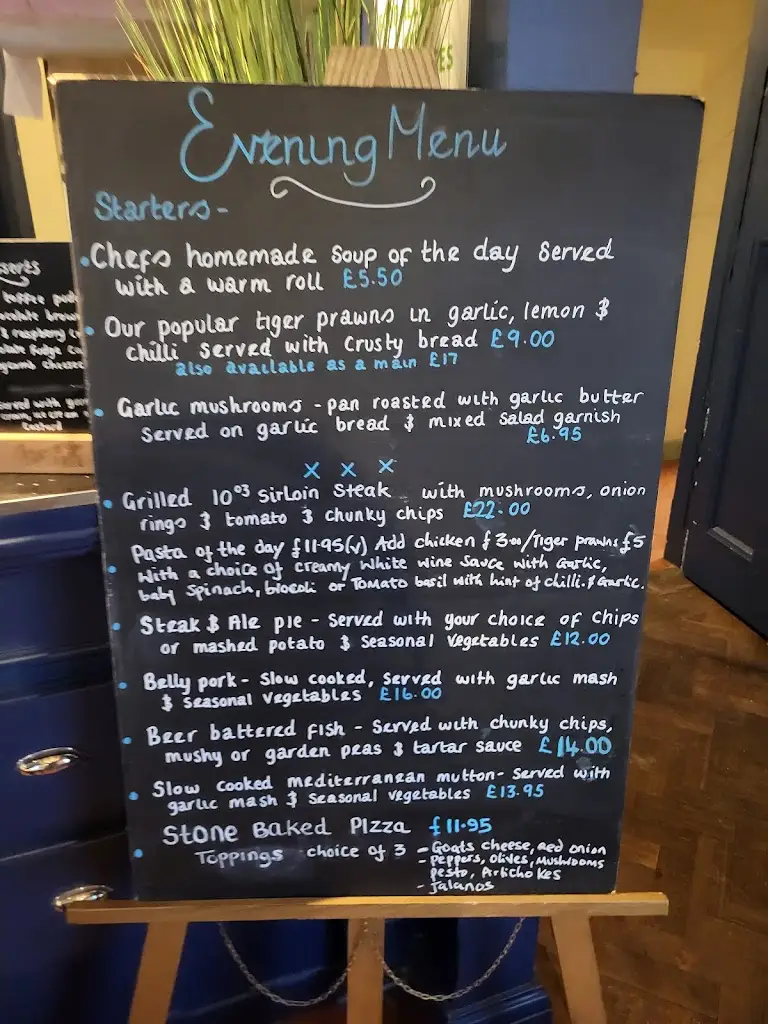 ES
Evening Menu
Starters -
• Chefs homemade soup of the day served
with a warm roll £5.50
• Our popular tiger prawns in garlic, lemon &
chilli served with crusty bread £9.00
also available as a main £17
• Garlic mushrooms - pan roasted with garlic butter
served on garlic bread & mixed salad garnish
£6.95
x x x
• Grilled 10oz Sirloin Steak with mushrooms, onion
rings & tomato & chunky chips £22.00
• Pasta of the day £11.95(v) Add chicken £3.00/Tiger prawns £5
With a choice of creamy white wine sauce with Garlic,
baby Spinach, brocoli or Tomato basil with hint of chilli & Garlic.
• Steak & Ale pie - Served with your choice of chips
or mashed potato & Seasonal Vegetables £12.00
• Belly pork - slow cooked, served with garlic mash
& seasonal vegetables £16.00
• Beer battered fish - Served with chunky chips,
mushy or garden peas & tartar sauce £14.00
• Slow cooked mediterranean mutton - served with
garlic mash & seasonal vegetables £13.95
Stone Baked Pizza £11.95
• Toppings choice of 3 - Goats cheese, red onion
- Peppers, olives, Mushrooms
pesto, Artichokes
- Jalanos